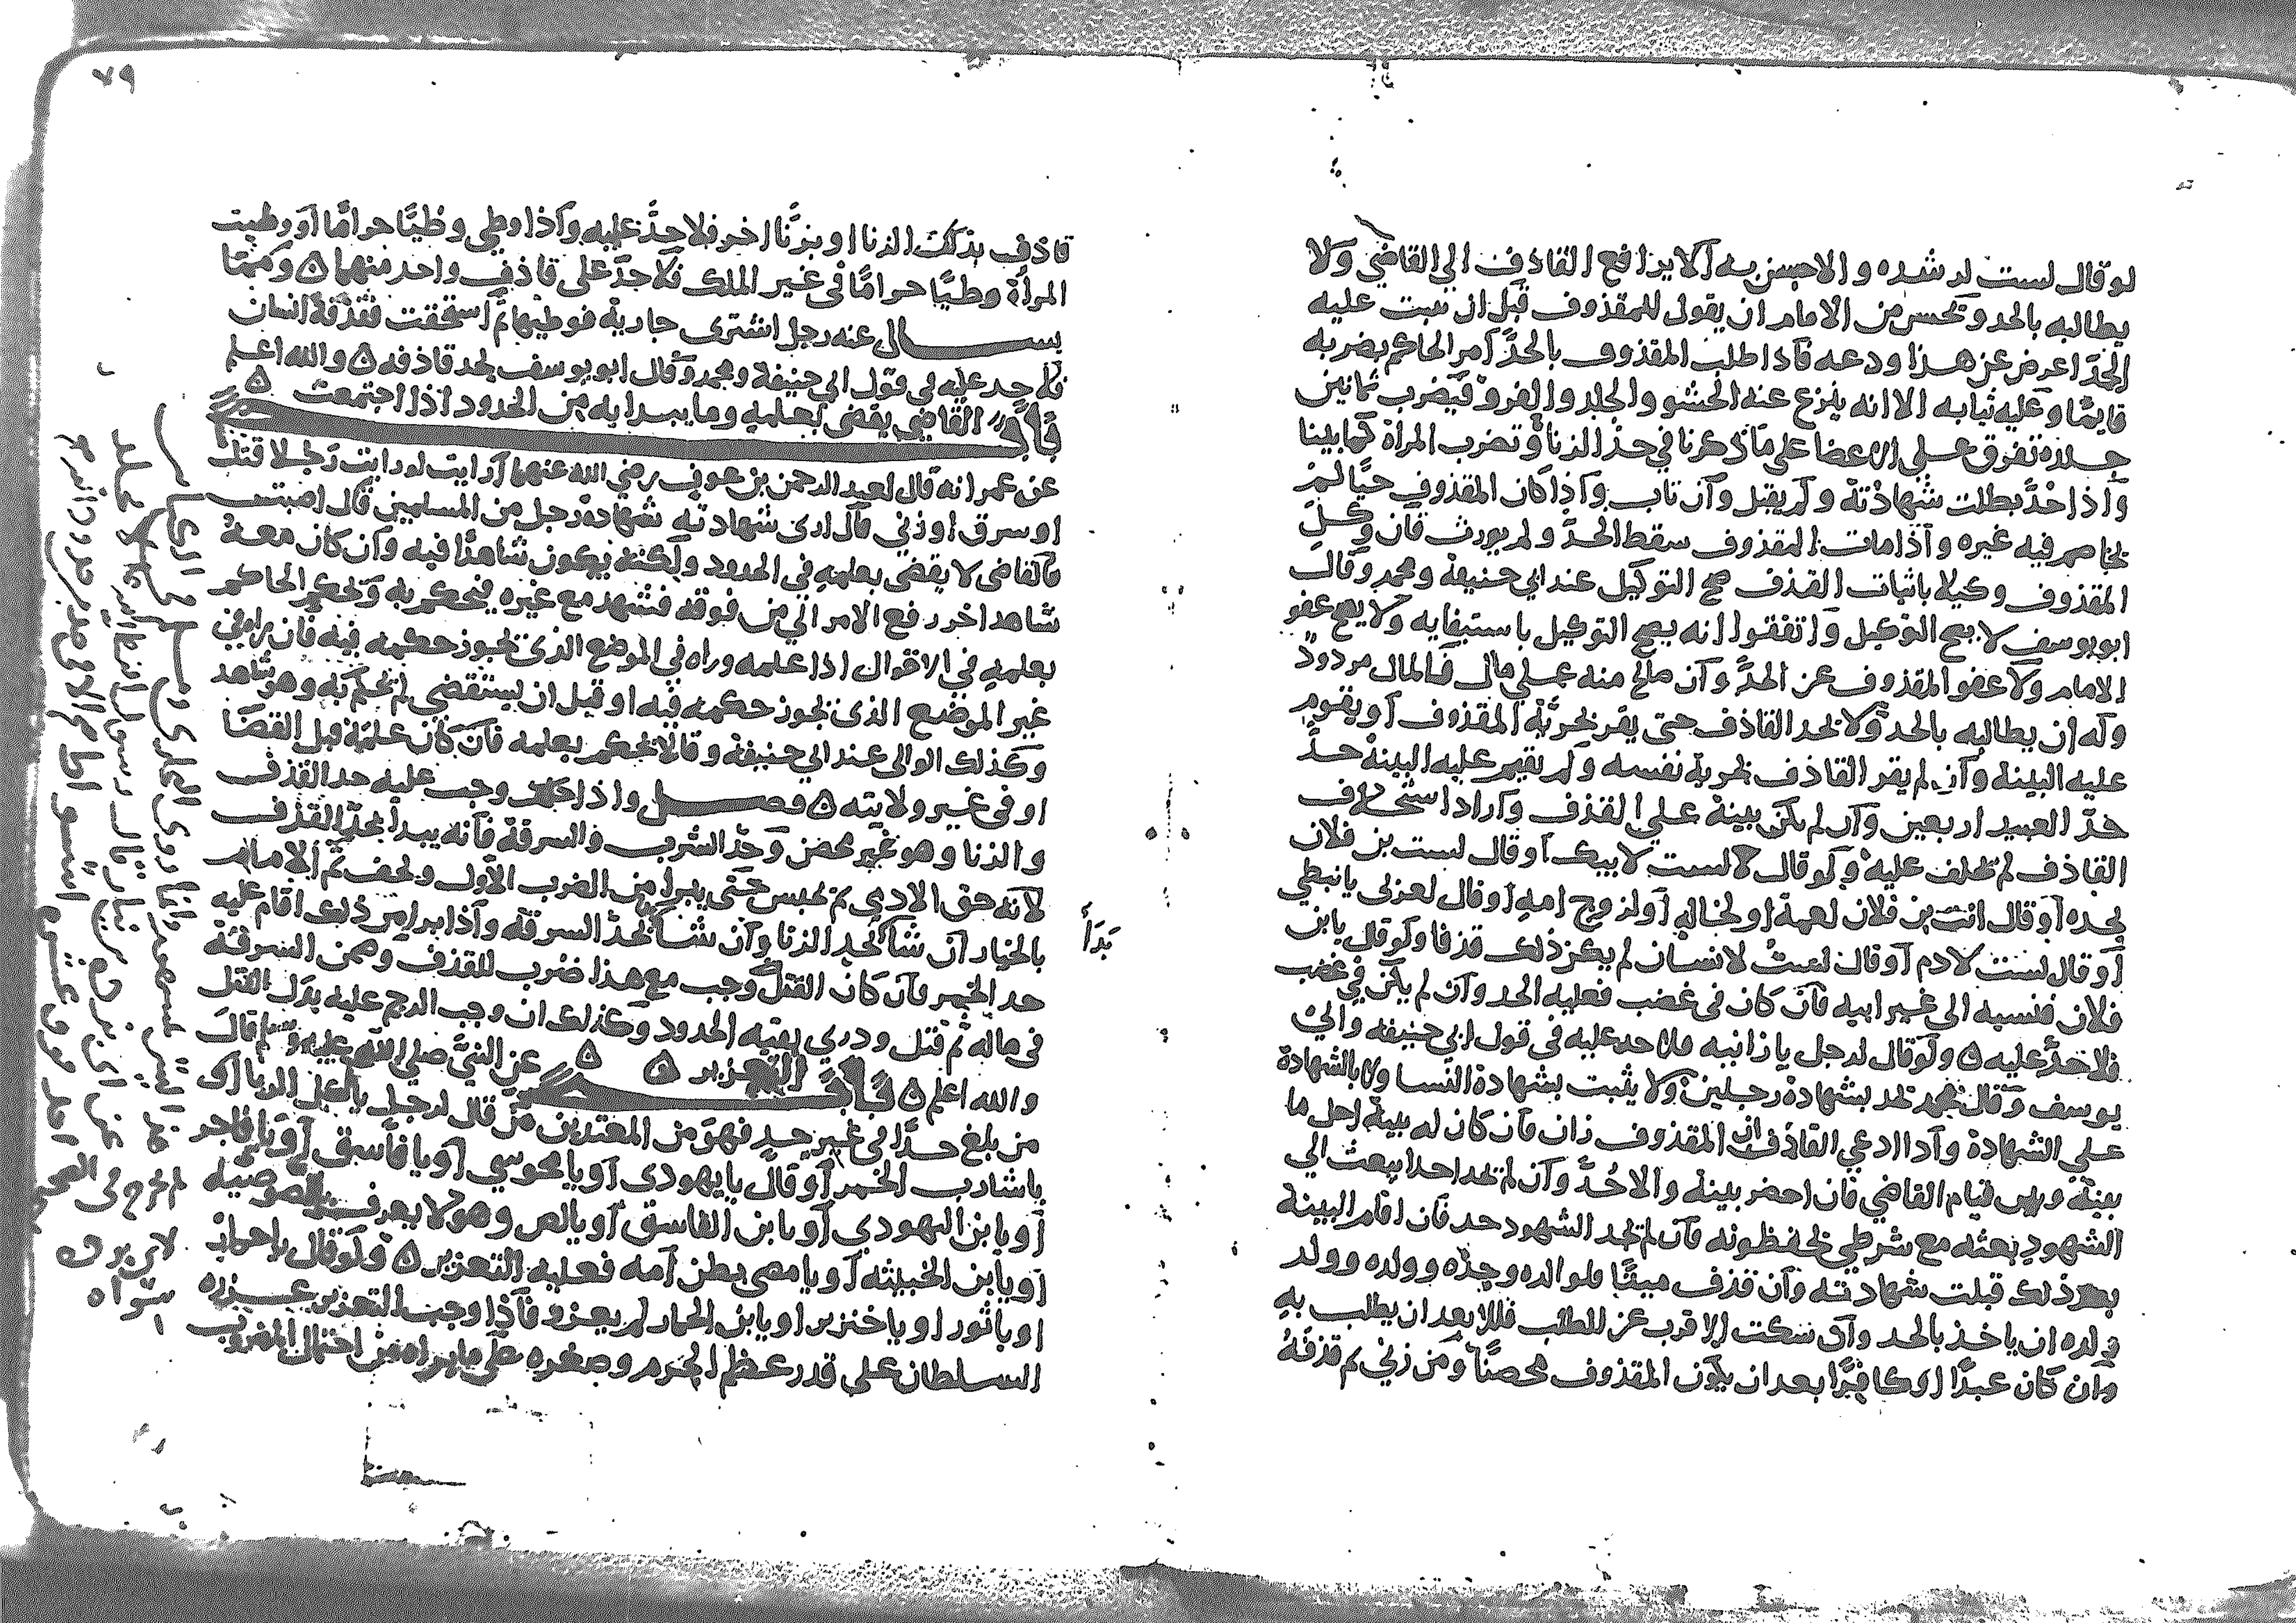 لو قال لست لرشده والاحسن به الا يرافع القاذف الي القاضي ولا
يطالبه بالحد ويحسن من الامام ان يقول للمقذوف قبل ان يثبت عليه
الحدّ اعرض عن هذا ودعه فاذا طلب المقذوف بالحدّ امر الحاكم بضربه
قايمًا وعليه ثيابه الا انه ينزع عنه الحشو والجلد والفرو فيضرب ثمانين
جلدة تفرق على الاعضا على ما ذكرنا في حدّ الزنا وتضرب المراة كما بينا
واذا حُدَّ بطلت شهادته ولم يقبل وان تاب واذا كان المقذوف حيًا لم
يخاصم فيه غيره واذا مات المقذوف سقط الحدّ ولم يورث فان وكل
المقذوف وكيلا باثبات القذف صح التوكيل عند ابي حنيفة ومحمد وقال
ابو يوسف لا يصح التوكيل واتفقوا انه يصح التوكيل باستيفايه ولا يصح عفو
الامام ولا عفو المقذوف عن الحدّ وان صالح منه على مال فالمال مردود
وله ان يطالبه بالحد ولا يحد القاذف حتى يقر بحريّة المقذوف او يقوم
عليه البينة وان لم يقر القاذف بحرية نفسه ولم يقم عليه البينة حدَّ
حدّ العبيد اربعين وان لم يكن بينة علي القذف واراد استحلاف
القاذف لم يحلف عليه ولو قال لست لابيك او قال لست بن فلان
لجده او قال انت بن فلان لعمه او لخاله او لزوج امه او قال لعربي يا نبطي
او قال لست لادم او قال لست لانسان لم يكن ذلك قذفا ولو قال يا بن
فلان فنسبه الي غير ابيه فان كان في غضب فعليه الحد وان لم يكن في غضب
فلا حدَّ عليه ولو قال لرجل يا زانيه فلا حد عليه في قول ابي حنيفه وابي
يوسف وقال محمد يحد بشهادة رجلين ولا يثبت بشهادة النسا ولا بالشهادة
على الشهادة واذا ادعي القاذف ان المقذوف زان فان كان له بينة اجل ما
بينه وبين قيام القاضي فان احضر بينة والا حُدَّ وان لم يجد احدا يبعث الي
الشهود بعثه مع شرطي يحفظونه فان لم يجد الشهود حد فان اقام البينة
بعد ذلك قبلت شهادته وان قذف ميتًا فلوالده وجدّه وولده وولد
ولده ان ياخذ بالحد وان سكت الاقرب عن الطلب فللابعد ان يطلب به
وان كان عبدًا او كافرًا بعد ان يكون المقذوف محصنًا ومن زني ثم قذفه
٧٩
قاذف بذلك الزنا او بزنًا اخر فلا حدَّ عليه واذا وطي وطيًا حرامًا او وطيت
المراة وطيًا حرامًا في غير الملك فلا حدّ على قاذف واحد منهما ومما
يسال عنه رجل اشترى جارية فوطيها ثم استحقت فقذفه انسان
فلا حد عليه في قول ابي حنيفة ومحمد وقال ابو يوسف يحد قاذفه والله اعلم
باب القاضي يقضي بعلمه وما يبدا به من الحدود اذا اجتمعت
عن عمر انه قال لعبد الرحمن بن عوف رضي الله عنهما ارايت لو رايت رجلا قتل
او سرق او زني قال ارى شهادته شهادة رجل من المسلمين قال اصبت
فالقاضي لا يقضي بعلمه في الحدود ولكنه يكون شاهدًا فيه وان كان معه
شاهد اخر رفع الامر الي من فوقه فشهد مع غيره فيحكم به ويحكم الحاكم
بعلمه في الاقوال اذا علمه وراه في الموضع الذي يجوز حكمه فيه فان راه في
غير الموضع الذي يجوز حكمه فيه او قبل ان يستقضي لم يحكم به وهو شاهد
وكذلك الوالي عند ابي حنيفة وقالا يحكم بعلمه فان كان علمه قبل القضا
او في غير ولايته فصل واذا وجب عليه حد القذف
والزنا وهو غير محصن وحدّ الشرب والسرقة فانه يبدا بحدّ القذف
لانه حق الادمي ثم يحبس حتى يبرا من الضرب الاول ويخف ثم الامام
بالخيار ان شا بحد الزنا وان شا بحدّ السرقة واذا برا من ذلك اقام عليه
بَدَأَ
حد الخمر فان كان القتل وجب مع هذا ضرب للقذف وضمن السرقة
في ماله ثم قتل ودري بقيه الحدود وكذلك ان وجب الرجم عليه بدل القتل
والله اعلم باب التعزير عن النبيّ صلي الله عليه وسلم قال
من بلغ حدًّا في غير حد فهو من المعتدين من قال لرجل يا اكل الربا او
يا شارب الخمر او قال يا يهودي او يا مجوسي او يا فاسق او يا فاجر
او يا بن اليهودي او يا ابن الفاسق او يا لص وهو لا يعرف باللصوصيه
او يا ابن الخبيثه او يا مص بطن امه فعليه التعزير ولو قال يا حمار
او يا ثور او يا خنزير او يا بن الحمار لم يعزر فاذا وجب التعزير عزره
السلطان على قدر عظم الجرم وصغره على ما يراه من احتمال المضروب